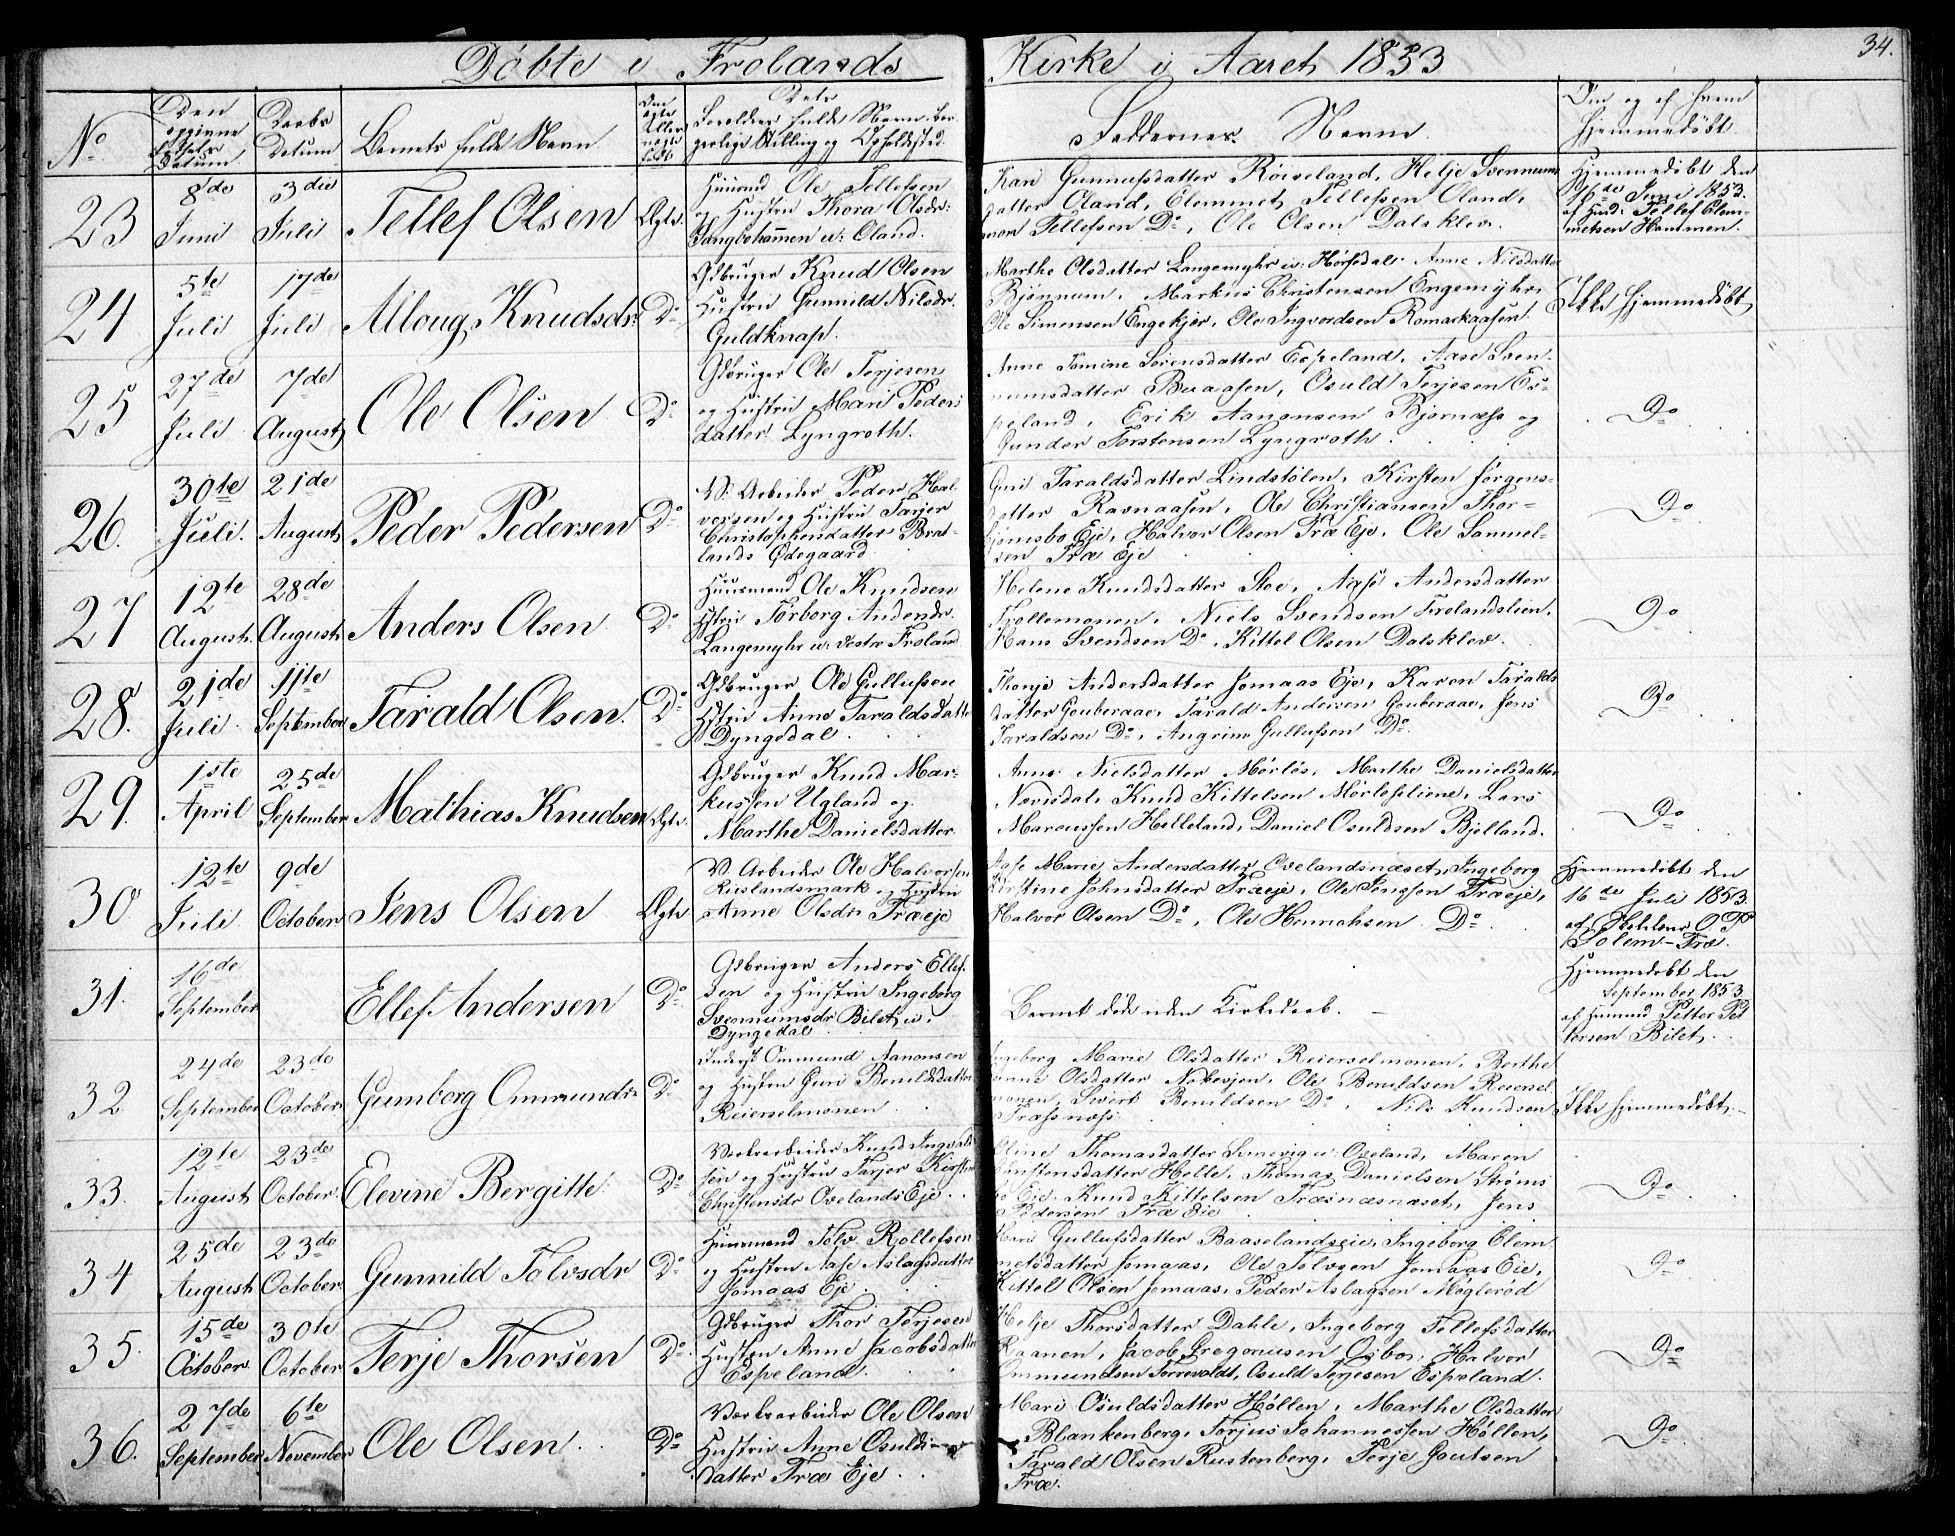 Döbte i Frolands Kirke i Aaret 1853
34.
No
Den opgivne Fødsels Datum.
Daabs Datum
Barnets fulde Navn
Om ægte Eller uægte født
Dets Forældres fulde Navn, borgerlige Stilling og Opholdssted.
Faddernes Navn.
Om og af hvem hjemmedöbt.
23
8de Juni
3die Juli
Tellef Olsen
Ægte.
Huusmd Ole Tellefsen
og Hustru Thora Olsdr:
u: Oland.
Kari Gunnufsdatter Röiseland, Helje Svennums
datter Oland, Clemmet Tellefsen Oland,
Tellefsen Do, Ole Olsen Dalsklev.
Hjemmedöbt den
16de Juni 1853.
af Husd: Tellef Clem-
metsen Hammen.
24
5te Juli
17de Juli
Alloug Knudsdr:
Do
Gdbruger Knud Olsen
Hustru Gunnild Nilsdr.
Guldknap.
Marthe Olsdatter Langemyhr u: Hörsdal. Anne Nilsdatter
Bjönnum, Markus Christensen Engemyhr,
Ole Simensen Engekjer, Ole Ingvordsen Romarkaasen.
Ikke hjemmedöbt
25
27de Juli
7de August
Ole Olsen
Do
Gdbruger Ole Terjesen
og Hustru Mari Peders
datter Lyngroth.
Anne Tomine Sörensdatter Espeland, Aase Sven-
numsdatter Buaasen, Osuld Terjesen Es-
peland, Erik Aanonsen Bjornæss og
Gunder Torstensen Lyngroth.
Do
26.
30te Juli.
21de August
Peder Pedersen
Do
V: Arbeider Peder Hal-
vorsen og Hustru Tarjer
Christophersdatter Brat-
lands Ødegaard
Guri Taraldsdatter Lindstölen, Kirsten Jörgens-
datter Ravnaasen, Ole Christiansen Thor-
Eje, Halvor Olsen Træ Eje, Ole Samuel-
sen Træ Eje
Do
27
12te August.
28de August.
Anders Olsen
Do
Huusmand Ole Knudsen
Hstru Torborg Andersdr.
Langemyhr u: Vestre Froland
Helene Knudsdatter Stoe, Aase Andersdatter
Trollemonen, Niels Svendsen Frolandslien,
Hans Svendsen Do, Kittel Olsen Dalsklev.
Do
28.
21de Juli.
11te September
Tarald Olsen.
Do
Gdbruger Ole Gullufsen
Hstru Anne Taraldsdatter
Dyngedal.
Thonje Andersdatter Jomaas Eje, Karen Taralds
datter Gouberaae, Tarald Andersen Gouberaae, Jens
Taraldsen Do, Angrim Gullufsen Do.
Do
29.
1ste April
25de September
Mathias Knudsen
Ægte.
Gdbruger Knud Mar-
kussen Ugland og
Marthe Danielsdatter
Anne Nielsdatter Mörlös, Marthe Danielsdatter
Nævisdal, Knud Kittelsen Mörlösliene, Lars
Marcussen Helleland, Daniel Osuldsen Bjelland.
Do
30
12te Juli.
9de October
Jens Olsen
Ægte
V. Arbeider Ole Halvorsen
Rislandsmark og Hustru
Anne Olsdr. Træeje
Aase Marie Andersdatter Ovelandsnæset, Ingeborg
Kirstine Johnsdatter Træeje, Ole Jensen Træeje,
Halvor Olsen Do, Ole Hinrichsen Do.
Hjemmedöbt den
16de Juli 1853.
af Skolelærer O. P.
Solem - Træ.
31.
16de September
Ellef Andersen
Do
Gdbruger Anders Ellef-
sen og Hustru Ingeborg
Svennumsdr Bilet u:
Dyngedal
Barnet döde uden Kirkedaab.
Hjemmedöbt den
September 1853
af Huusmd Petter Pet
tersen Bilet.
32
24de September
23de October
Gunborg Ommundsdr
Do
Inderst Ommund Aanonsen
og Hustru Guri Benildsdatter
Reierselmonen
Ingeborg Marie Olsdatter Reierselmonen, Berthe
Olsdatter Nokevjen, Ole Benuldsen Reiersel
monen, Sivert Benildsen Do, Nils Knudsen
Træsnæss.
Ikke hjemmedöbt.
33.
12te August
23de October.
Elevine Bergitte.
Do
Værkarbeider Knud Ingvald
sen og Hustru Tarjer Kirstine
Christensdr Ovelands Eje.
Eline Thomasdatter Somevig u: Oveland, Maren
datter Helle, Thomas Danielsen Ströms
bo Eje. Knud Kittelsen Træsnæsnæset, Jens
Pedersen Træ Eie
Do
34
25de August
23de October
Gunnild Tolvsdr
Do
Huusmand Tolv Rollefsen
og Hustru Aase Aslagsdatter
Jomaas Eje.
Mari Gullufsdatter Baaselandseie, Ingeborg Clem
metsdatter Jomaas, Ole Tolvsen Jomaas Eie,
Kittel Olsen Jomaas, Peder Aslagsen Möglerød
Do
35.
15de October
30te October
Terje Thorsen
Do
Gdbruger Thor Terjesen
Hustru Anne Jacobsdatter
Espeland.
Helje Thorsdatter Dahle, Ingeborg Tellefsdatter
Raanen, Jacob Gregoriusen Osbo, Halvor
Ommundsen Torrevoldt, Osuld Terjesen Espeland.
Do
36.
27de September
6te November
Ole Olsen
Do
Værkarbeider Ole Olsen
Hustru Anne Osulds-
datter Træ Eje.
Mari Osuldsdatter Höllen, Marthe Olsdatter
Blankenberg, Torjus Johannessen Höllen,
Tarald Olsen Rustenberg, Terje Goutsen
Træ.
Do